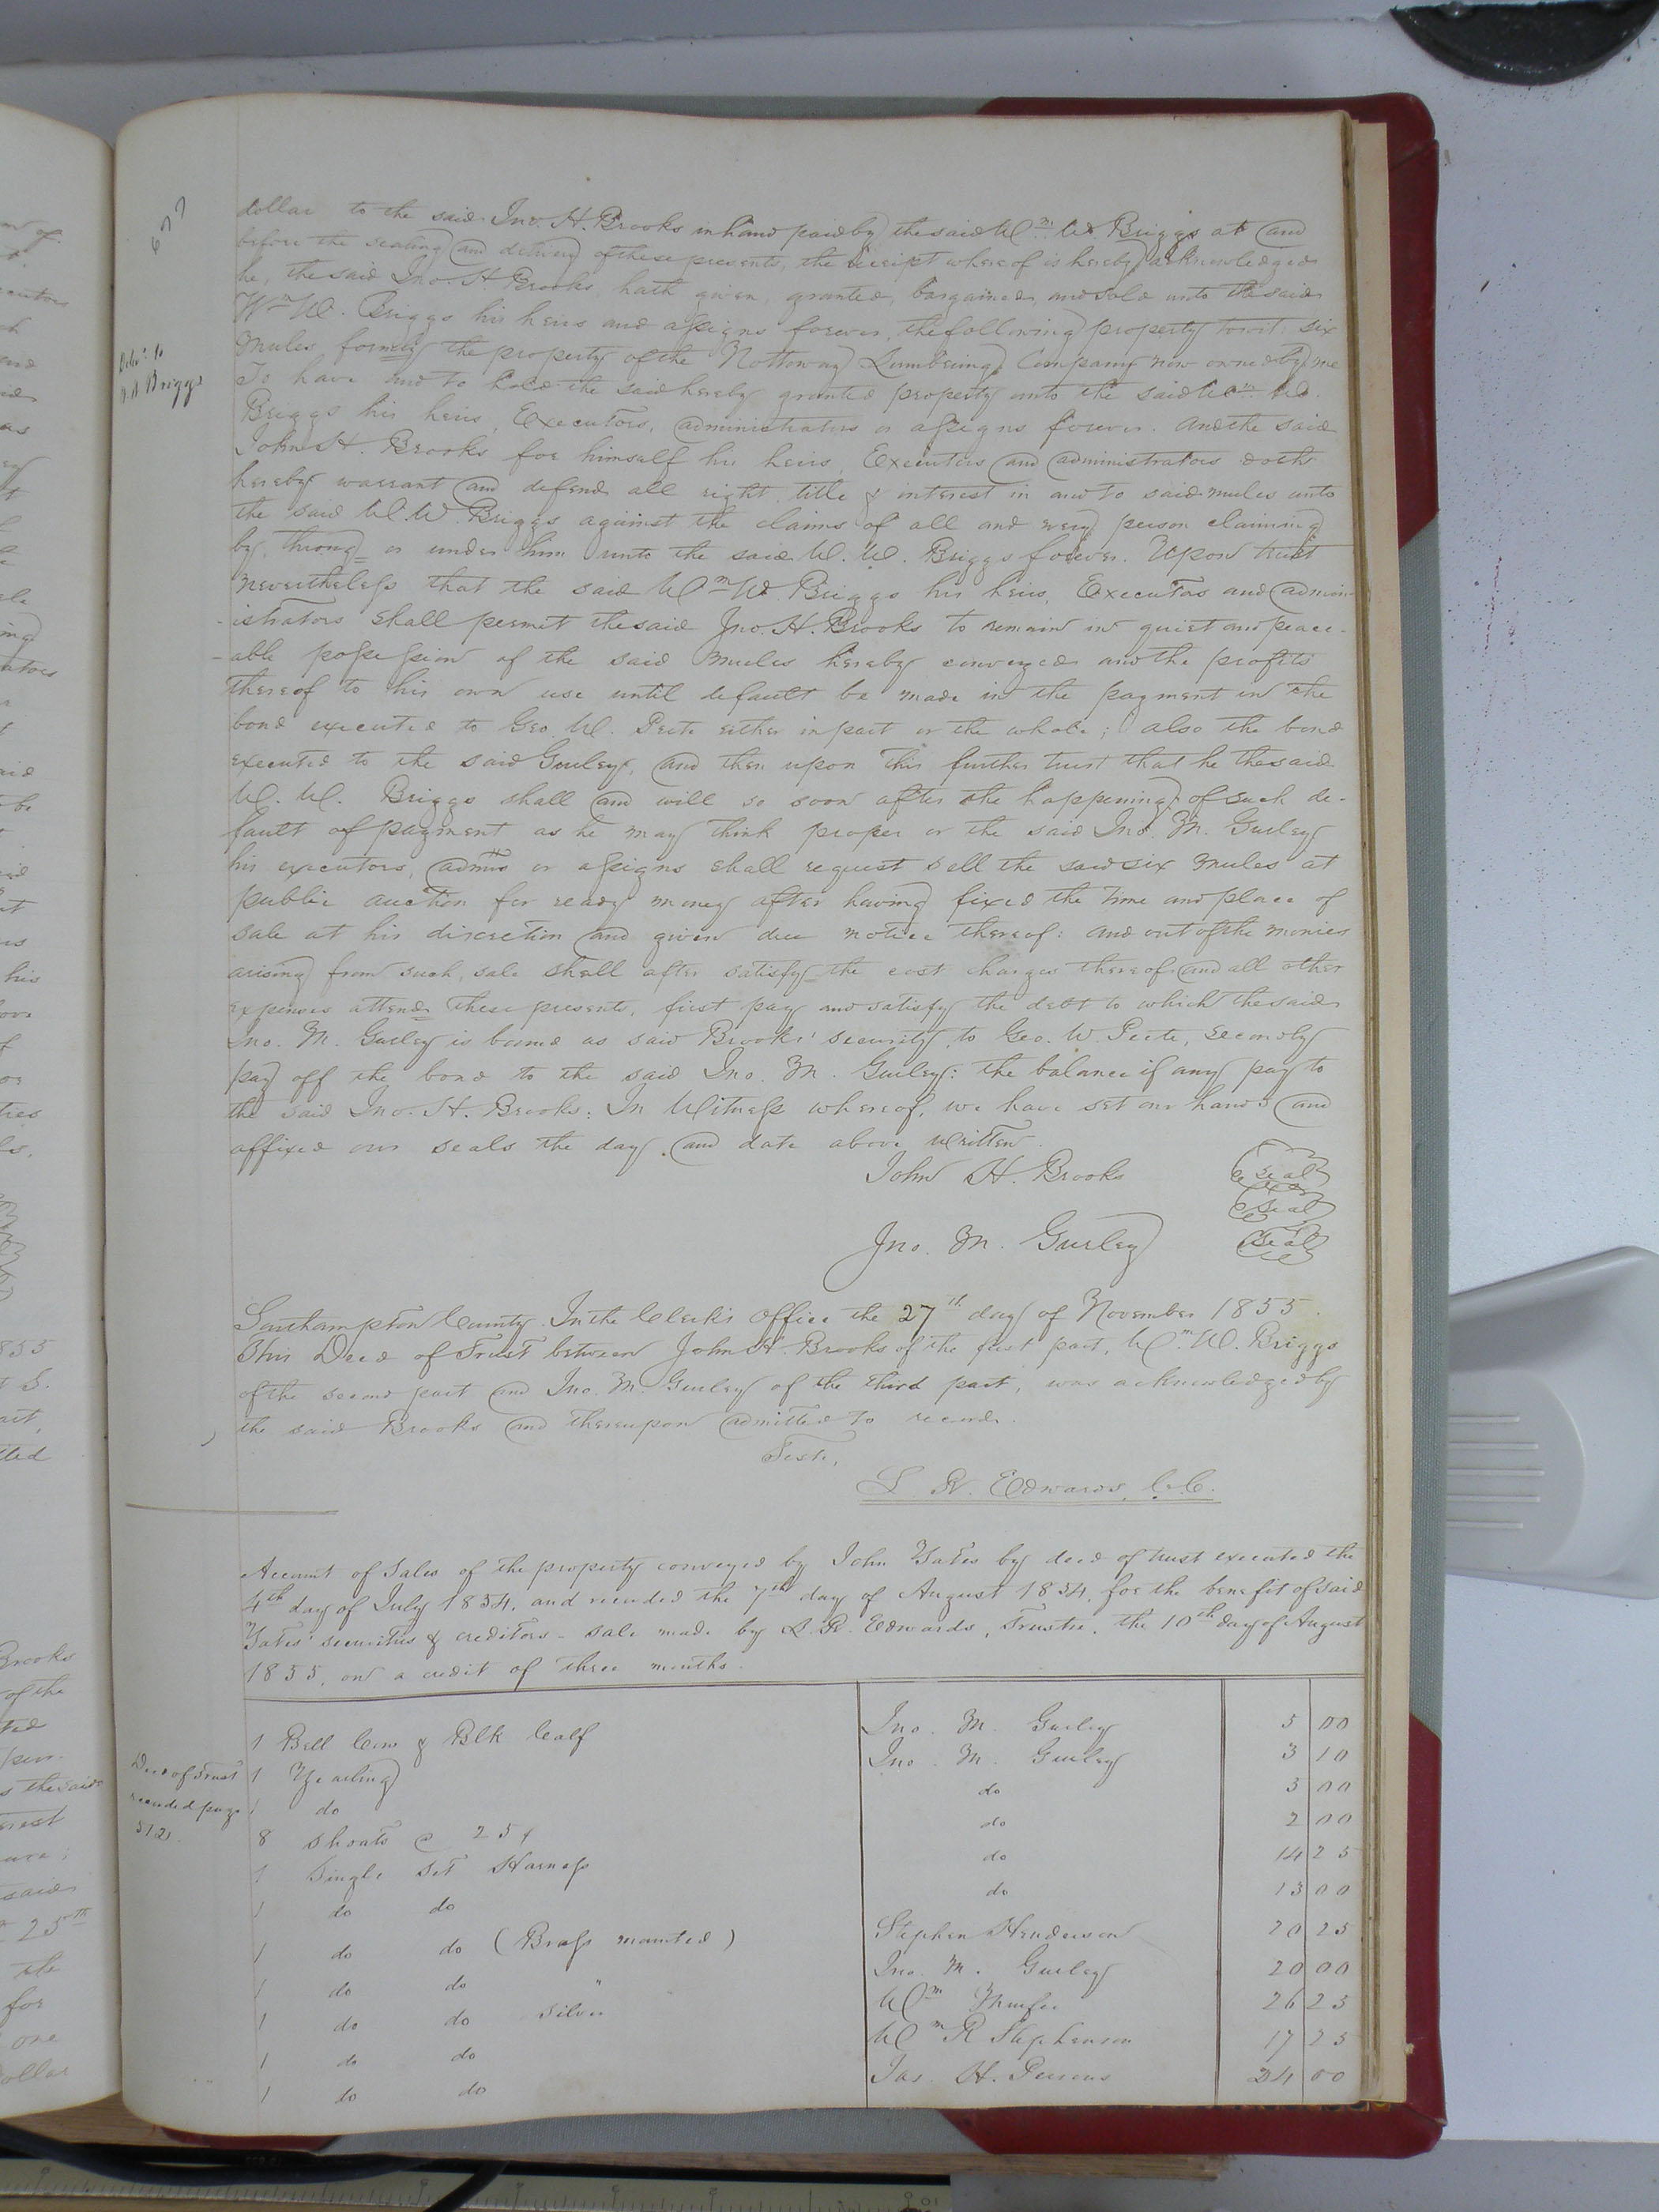 677
dollar to the said Jno. H. Brooks in hand paid by the said Wm. W. Briggs at and
before the sealing and delivery of these presents, the receipt whereof is hereby acknowledged
he, the said Jno. H Brooks hath given, granted, bargained, and sold unto the said
Wm W. Briggs his heirs and assigns forever, the following property towit: six
mules formerly the property of the Nottoway Lumbering Company now owned by me
To have and to hold the said hereby granted property unto the said Wm. W.
Briggs his heirs, Executors, administrators or assigns forever. And the said
John H. Brooks for himself his heirs, Executors and administrators doth
hereby warrant and defend all right, title & interest in and to said mules unto
the said W. W. Briggs against the claims of all and every person claiming
by, throug= or under him unto the said W. W. Briggs forever. Upon trust
nevertheless that the said Wm W. Briggs his heirs, Executors and admin-
-istrators shall permit the said Jno. H. Brooks to remain in quiet and peace-
-able possession of the said mules hereby conveyed and the profits
thereof to his own use until default be made in the payment in the
bond executed to Geo. W. Peete either in part or the whole; also the bond
executed to the said Gurley, and then upon this further trust that he the said
W. W. Briggs shall and will so soon after the happening of such de-
fault of payment as he may think proper or the said Jno. M. Gurley
his executors, admrs or assigns shall request sell the said six mules at
public auction for ready money after having fixed the time and place of
sale at his discretion and given due notice thereof: and out of the monies
arising from such sale shall after satisfy= the cost charges thereof and all other
expenses attend= these presents, first pay and satisfy the debt to which the said
Jno. M. Gurley is bound as said Brooks' security to Geo. W. Peete, secondly
pay off the bond to the said Jno. M. Gurley: the balance if any pay to
the said Jno. H. Brooks: In Witness whereof, we have set our hands and
affixed our seals the day and date above written.
John H. Brooks seal
seal
Jno. M. Gurley seal
Southampton County. In the Clerk's Office the 27th day of November 1855.
This Deed of Trust between John H. Brooks of the first part, Wm. W. Briggs
of the second part and Jno. M. Gurley of the third part, was acknowledged by
the said Brooks and thereupon admitted to record.
Teste,
L. R. Edwards, C.C.
Account of Sales of the property conveyed by John Yates by deed of trust executed the
4th day of July 1854, and recorded the 7th day of August 1854, for the benefit of said
Yates' securities & creditors - sale made by L. R. Edwards, Trustee, the 10th day of August
1855, on a credit of three months.
Deed of Trust
recorded page
512.
1 Bell Cow & Blk Calf Jno. M. Gurley 5 00
1 Yearling Jno. M. Gurley 3 10
1 do do 3 00
8 Shoats @ 25¢ do 2 00
1 Single Set Harness do 14 25
1 do do do 13 00
1 do do (Brass mounted) Stephen Henderson 20 25
1 do do " Jno. M. Gurley 20 00
1 do do Silver Wm 26 25
1 do do Wm R Stephenson 17 25
1 do do Jas. H. Persons 24 00